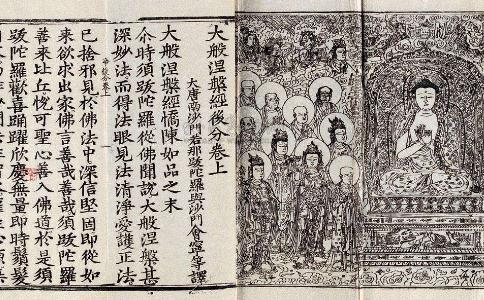 大般涅槃經後分卷上
大唐南海沙門若那跋陀羅與沙門會寧等譯
大般涅槃經憍陳如品之末
尒時須跋陀羅從佛聞說大般涅槃甚
深妙法而得法眼見法清淨愛護正法
已捨邪見於佛法中深信堅固即從如
來欲求出家佛言善哉善哉須跋陀羅
善來比丘悅可聖心善入佛道於是須
跋陀羅歡喜踊躍欣慶無量即時鬚髮